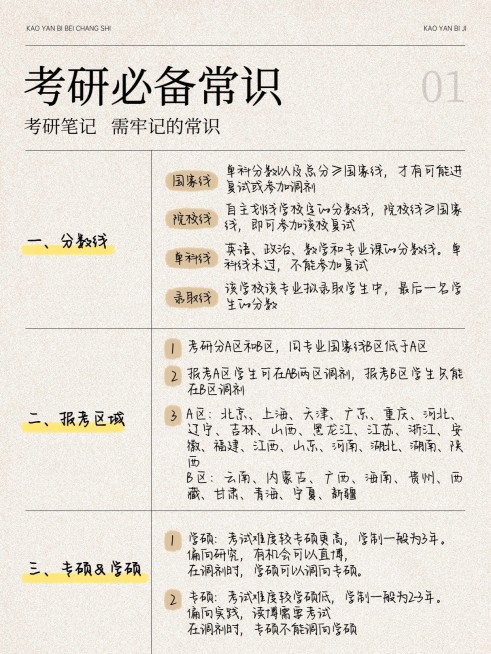 KAO YAN BI BEI CHANG SHI
KAO YAN BI JI
考研必备常识
01
考研笔记 需牢记的常识
一、分数线
国家线
单科分数以及总分≥国家线，才有可能进
复试或参加调剂
院校线
自主划线学校定的分数线，院校线≥国家
线，即可参加该校复试
单科线
英语、政治、数学和专业课的分数线。单
科线未过，不能参加复试
录取线
该学校该专业拟录取学生中，最后一名学
生的分数
二、报考区域
1 考研分A区和B区，同专业国家线B区低于A区
2 报考A区学生可在AB两区调剂，报考B区学生只能
在B区调剂
3 A区：北京、上海、天津、广东、重庆、河北、
辽宁、吉林、山西、黑龙江、江苏、浙江、安
徽、福建、江西、山东、河南、湖北、湖南、陕
西
B区：云南、内蒙古、广西、海南、贵州、西
藏、甘肃、青海、宁夏、新疆
三、专硕&学硕
1 学硕：考试难度较专硕更高，学制一般为3年。
偏向研究，有机会可以直博，
在调剂时，学硕可以调向专硕。
2 专硕：考试难度较学硕低，学制一般为2-3年。
偏向实践，读博需要考试
在调剂时，专硕不能调向学硕